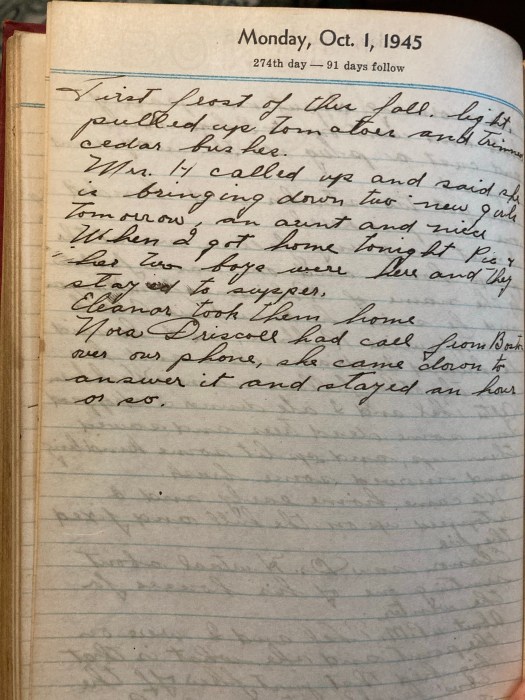 Monday, Oct. 1, 1945
274th day — 91 days follow
First frost of this fall. light.
pulled up tomatoes and
cedar bushes.
Mrs. H called up and said she
is bringing down two new girls
tomorrow, an aunt and niece
When I got home tonight Pic &
her two boys were here and they
stayed to supper.
Eleanor took them home
Nora Driscoll had call from
over our phone, she came down to
answer it and stayed an hour
or so.